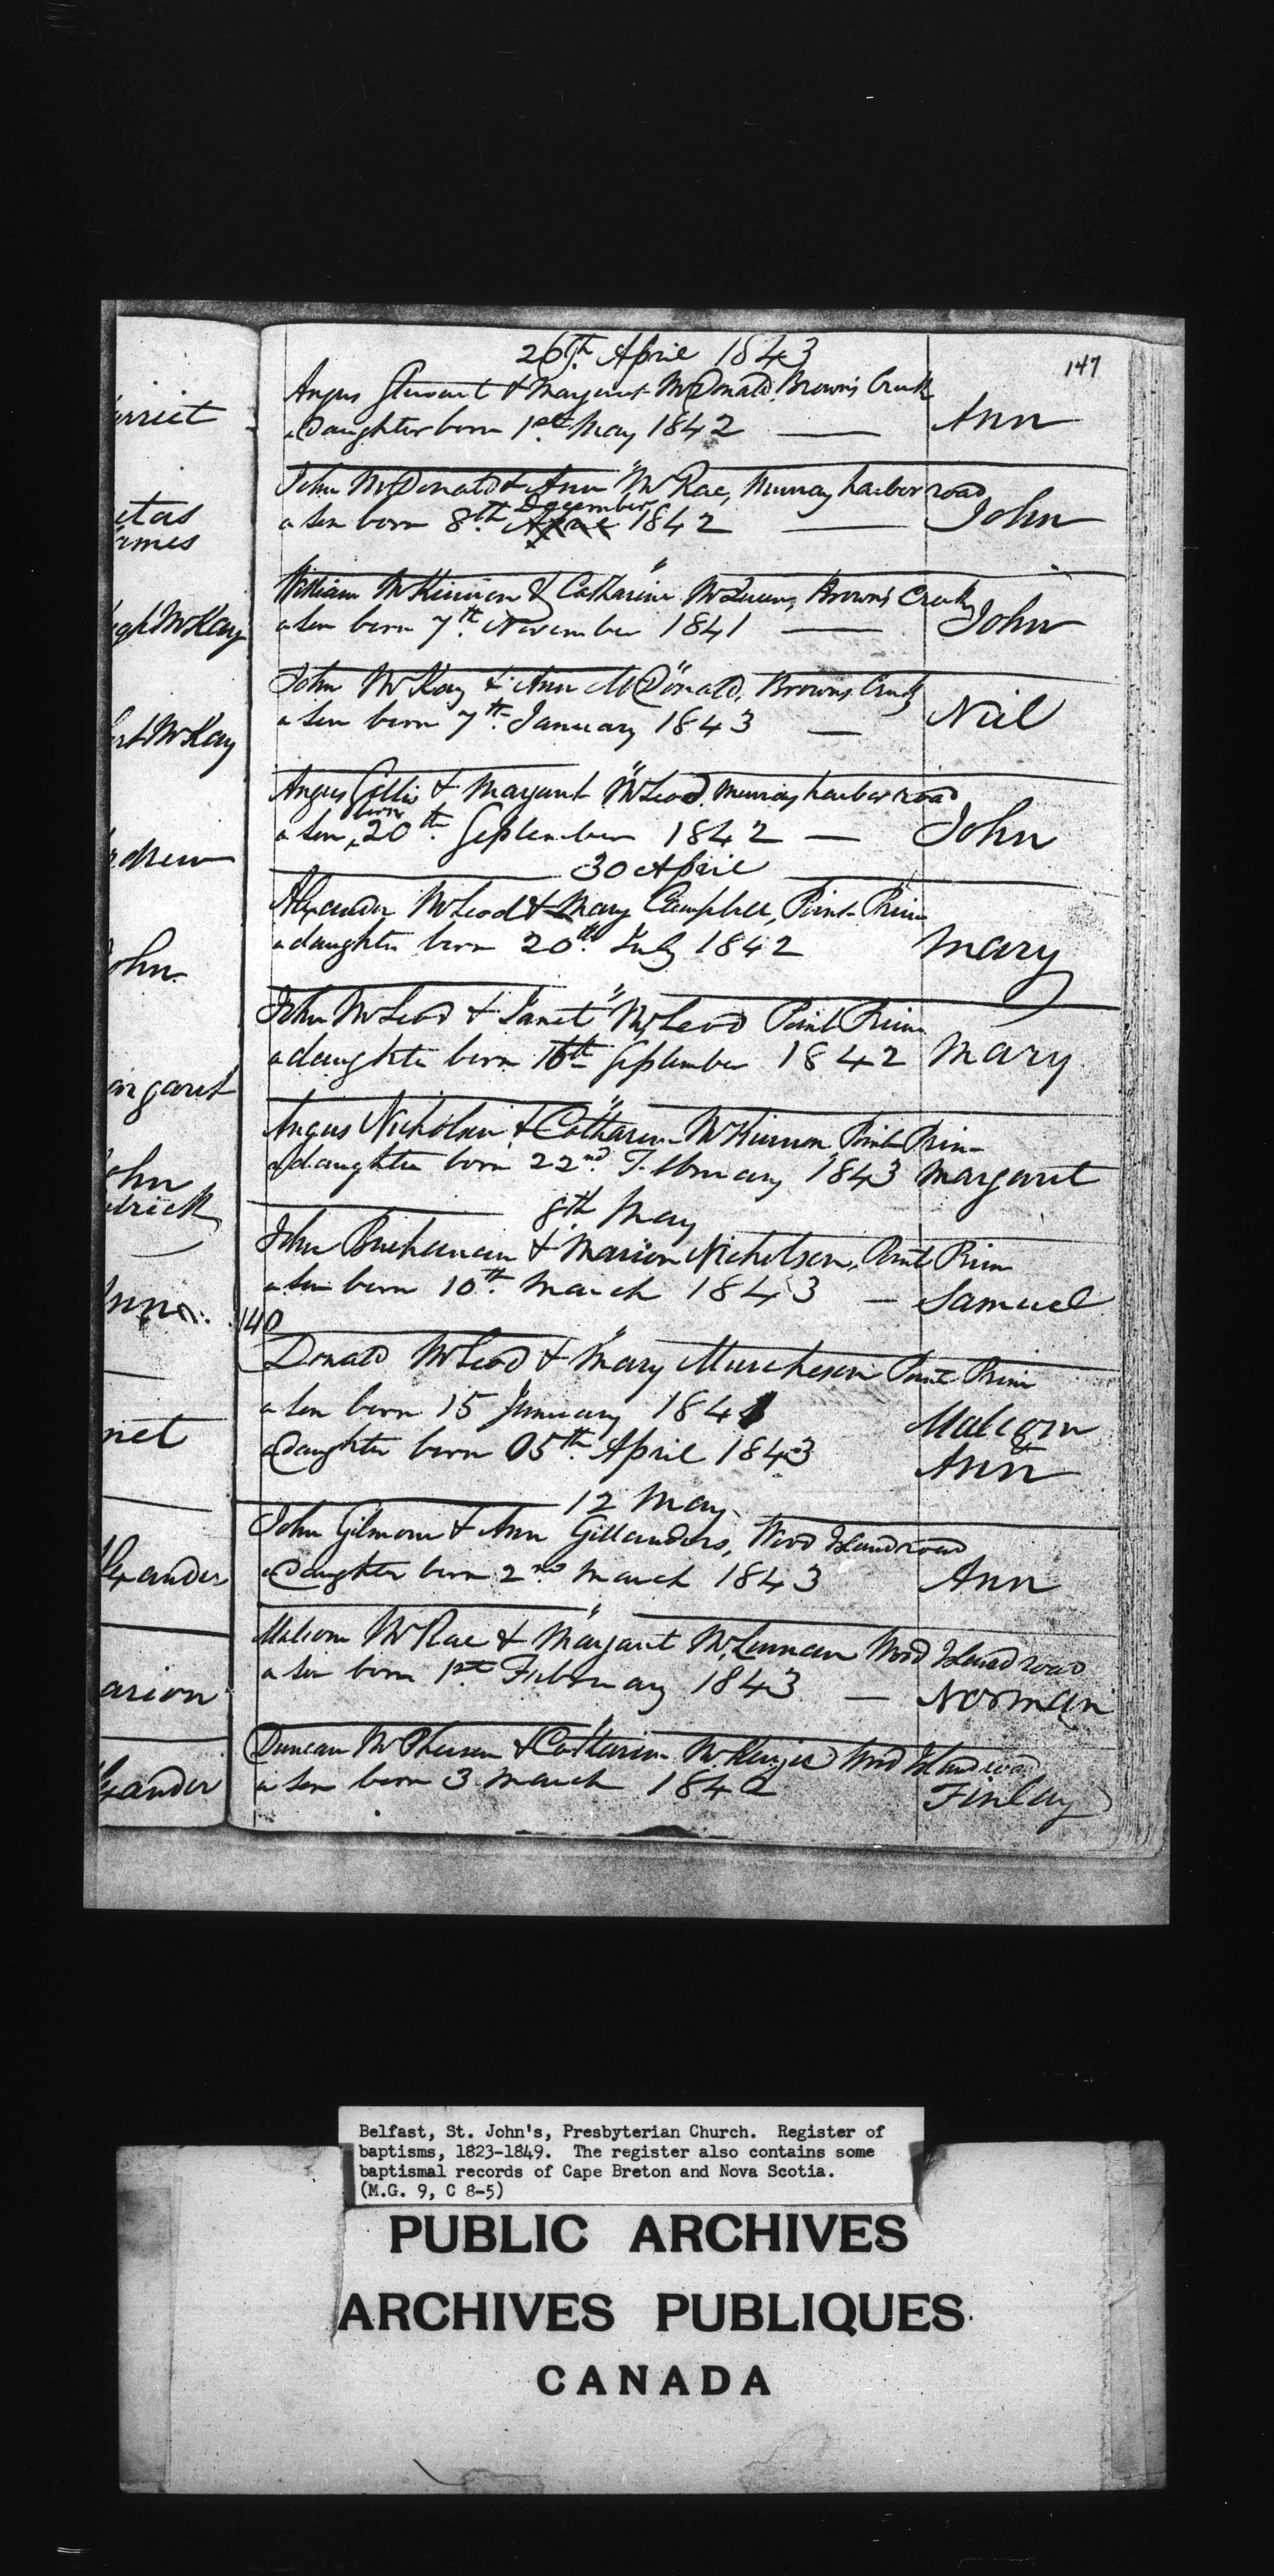 26th. April 1843
147
Angus Stewart & Margaret McDonald Brown's Creek
a Daughter born 1st May 1842 — Ann
John McDonald & Ann McRae, Murray harbor road
a Son born 8th. December 1842 — John
William McKinnon & Catharine McQueen, Brown's Creek
a Son born 7th. November 1841 — John
John McKay & Ann McDonald, Browns Creek
a Son born 7th January 1843 — Neil
Angus Gillis & Margaret McLeod, Murray harbor road
a Son, born 20th. September 1842 — John
30 April
Alexander McLeod & Mary Campbell, Point Prim
a daughter born 20th. July 1842 Mary
John McLeod & Janet McLeod Point Prim
a daughter born 16th September 1842 Mary
Angus Nicholson & Catharine McKinnon Point Prim
a daughter born 22nd. February 1843 Margaret
8th. May
John Buchanan & Marion Nicholson, Point Prim
a Son born 10th. March 1843 — Samuel
140
Donald McLeod & Mary Murcheson Point Prim
a Son born 15 January 1841 Malcom
&
a Daughter born 05th. April 1843 Ann
12 May
John Gilmour & Ann Gillanders, Wood Island road
a Daughter born 2nd March 1843 Ann
Malcom McRae & Margaret McLennan Wood Island road
a Son born 1st February 1843 — Norman
Duncan McPherson & Catharine McKenzie Wood Island road
a Son born 3 March 1842 Finlay
rriet
etas
ames
gh McKay
rt McKay
drew
ohn
argaret
ohn
trick
net
lexander
arion
exander
Belfast, St. John's, Presbyterian Church. Register of
baptisms, 1823-1849. The register also contains some
baptismal records of Cape Breton and Nova Scotia.
(M.G. 9, C 8-5)
PUBLIC ARCHIVES
ARCHIVES PUBLIQUES
CANADA